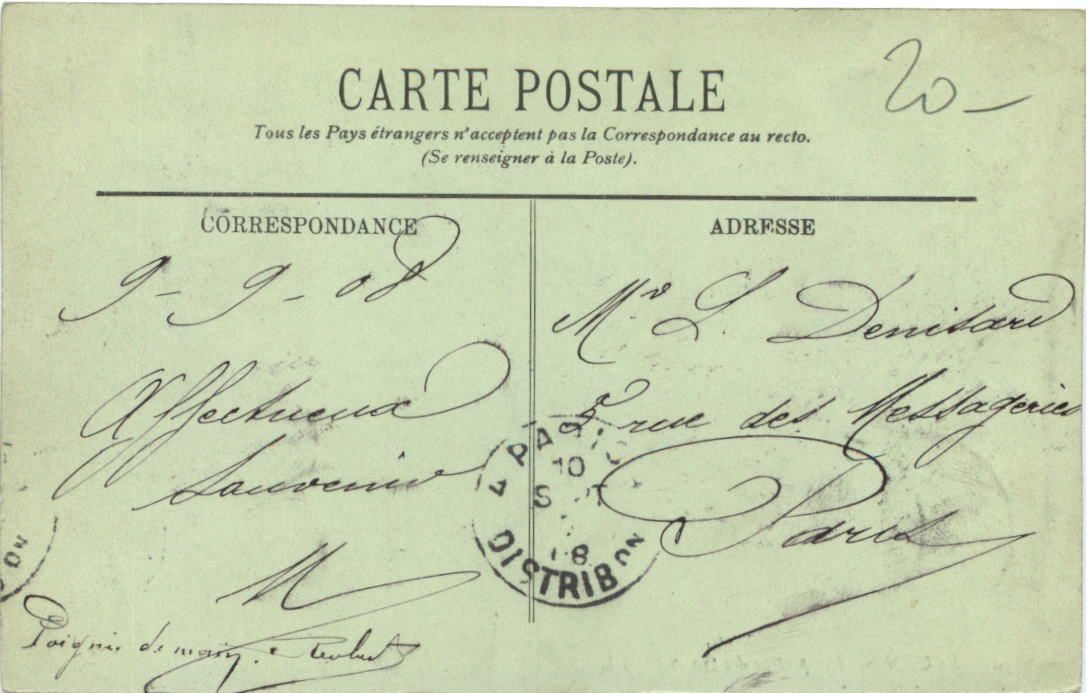 20-
CARTE POSTALE
Tous les Pays étrangers n'acceptent pas la Correspondance au recto.
(Se renseigner à la Poste).
CORRESPONDANCE
9-9-08
Affectueux
souvenir
M
Poignée de main
ADRESSE
Mr L. Denisard
5 rue des Messageries
Paris
PARIS
10
S
08
DISTRIBON